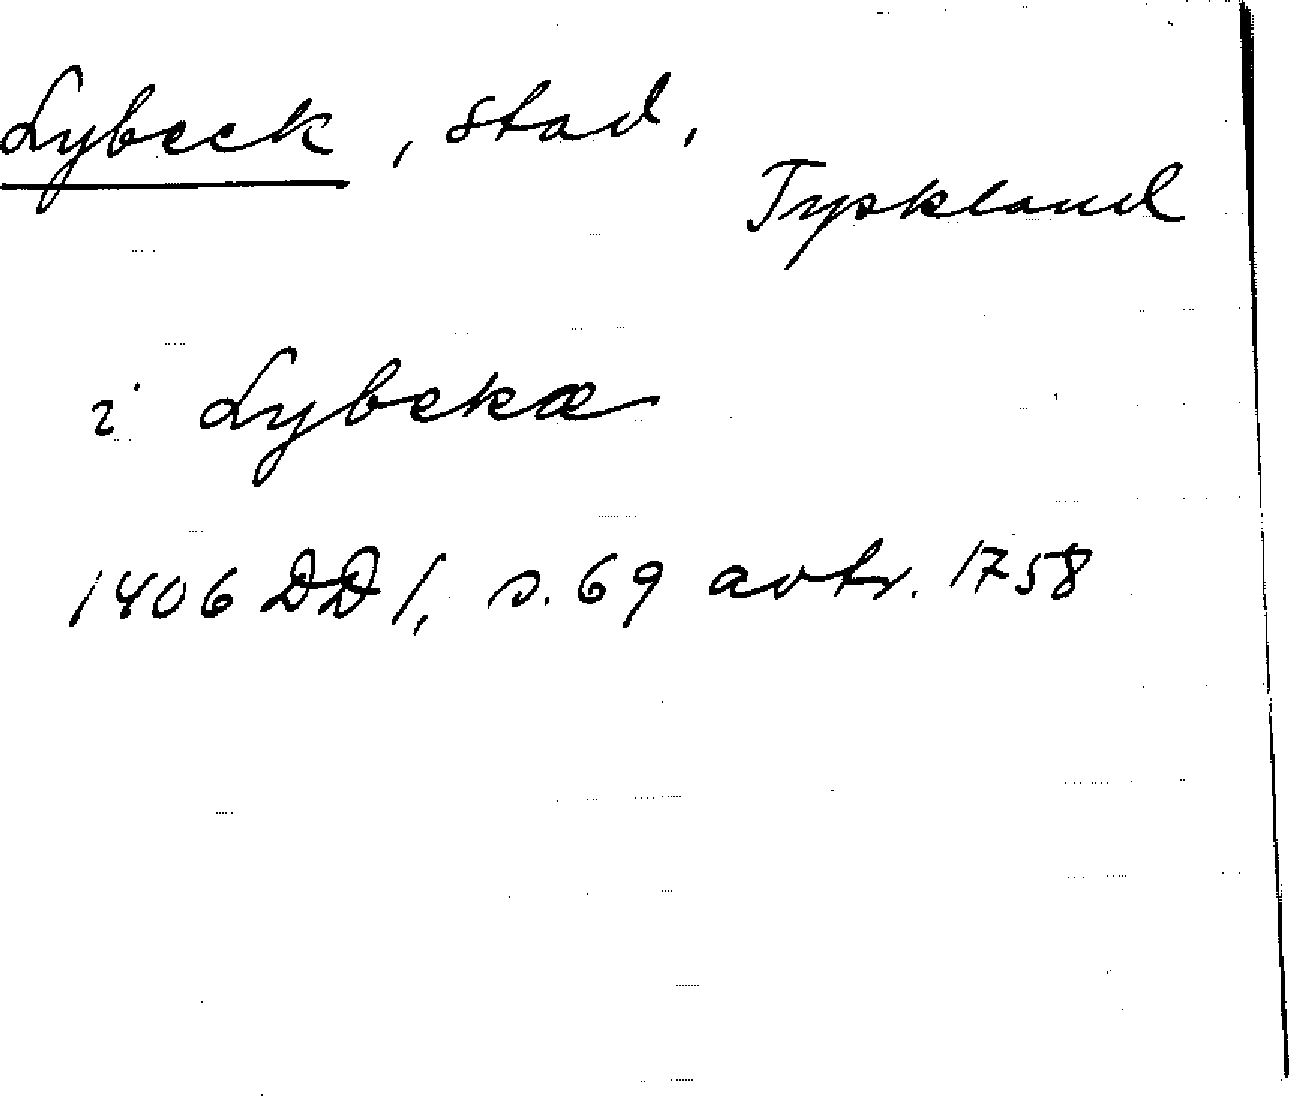 Lybeck, stad,
Tyskland
i Lybekæ
1406 DD 1, s. 69 avtr. 1758